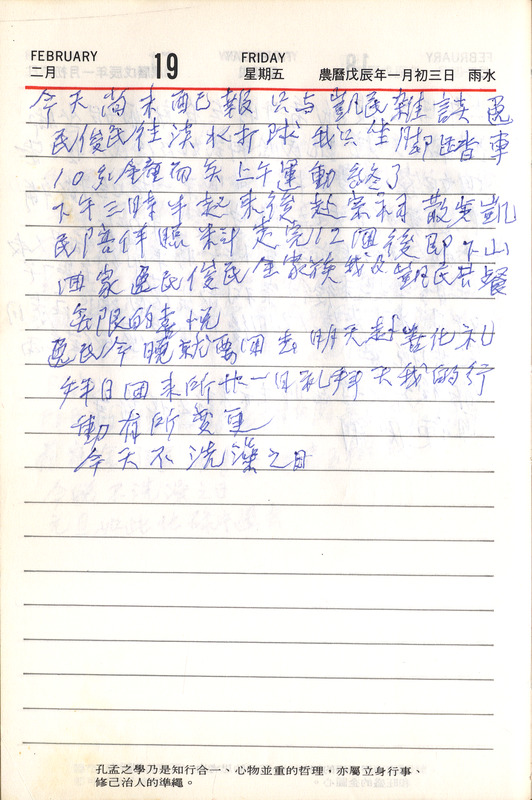 FEBRUARY
二月
19
FRIDAY
星期五
農曆戊辰年一月初三日 雨水
今天尚未配報 只与凱民雜談
民俊民往淡水打球 我只坐脚踏車
10 分鐘而矣 上午運動
下午三時半起來後赴 散步凱
民陪伴照 走完12個後即下山
回家 民俊民全家族 我及凱民共餐
無限的喜悅
民今晚就要回去 明天 彰化礼
拜日回來所 一日礼拜天我的行
動有所變更
今天不洗澡之日
孔孟之學乃是知行合一、心物並重的哲理，亦屬立身行事、
修己治人的準繩。